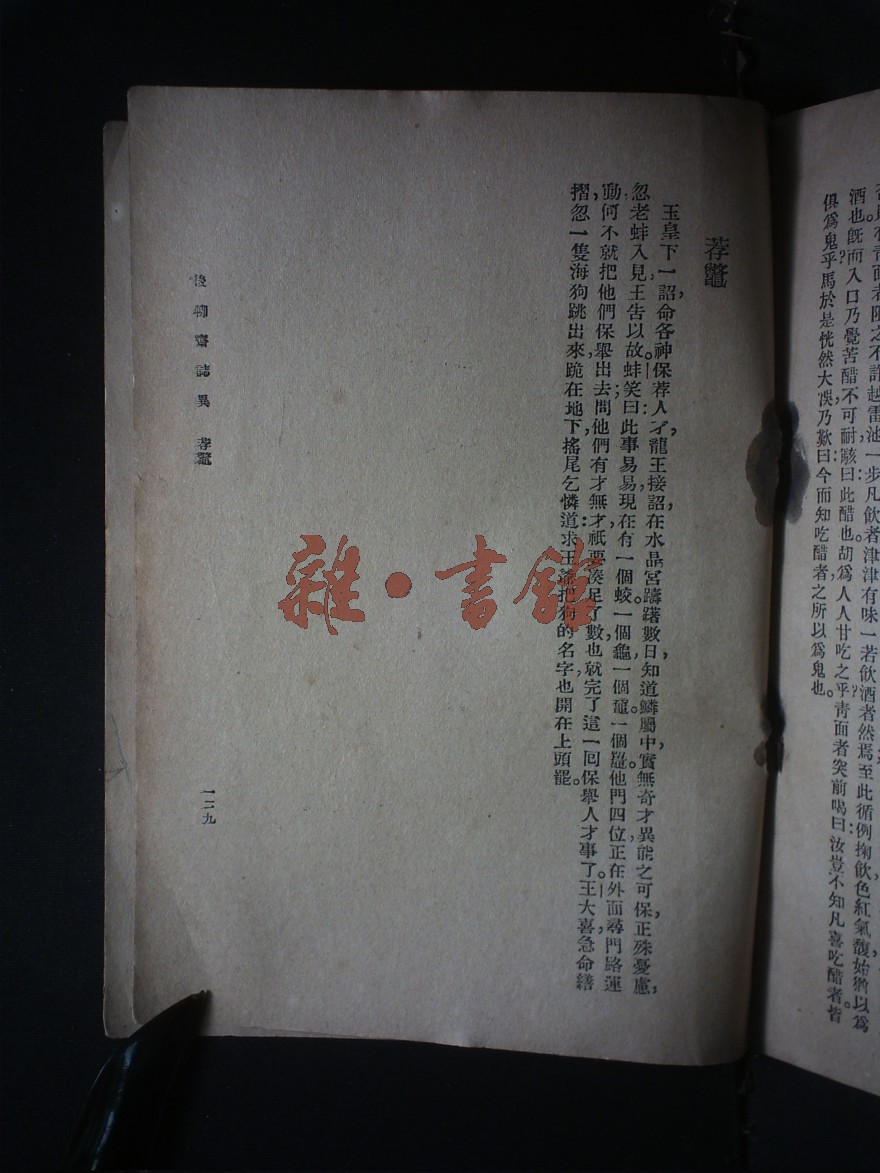 酒也旣而入口乃覺苦醋不可耐駭曰此醋也胡爲人人甘吃之乎靑面者突前喝曰汝豈不知凡喜吃醋者皆
俱爲鬼乎馮於是恍然大悞乃歎曰今而知吃醋者之所以爲鬼也。
荐鼈
玉皇下一詔命各神保荐人才龍王接詔在水晶宮躊躇數日知道鱗屬中實無奇才異能之可保正殊憂慮,
忽老蚌入見王吿以故蚌笑曰此事易易現在有一個蛟一個龜一個黿一個鼉他門四位正在外面尋門路運
動何不就把他們保舉出去問他們有才無才祇要湊足了數也就完了這一囘保舉人才事了王大喜急命繕
摺忽一隻海狗跳出來跪在地下搖尾乞憐道求王爺把狗的名字也開在上頭罷。
後聊齋誌異 荐鼈
一二九
雜·書館